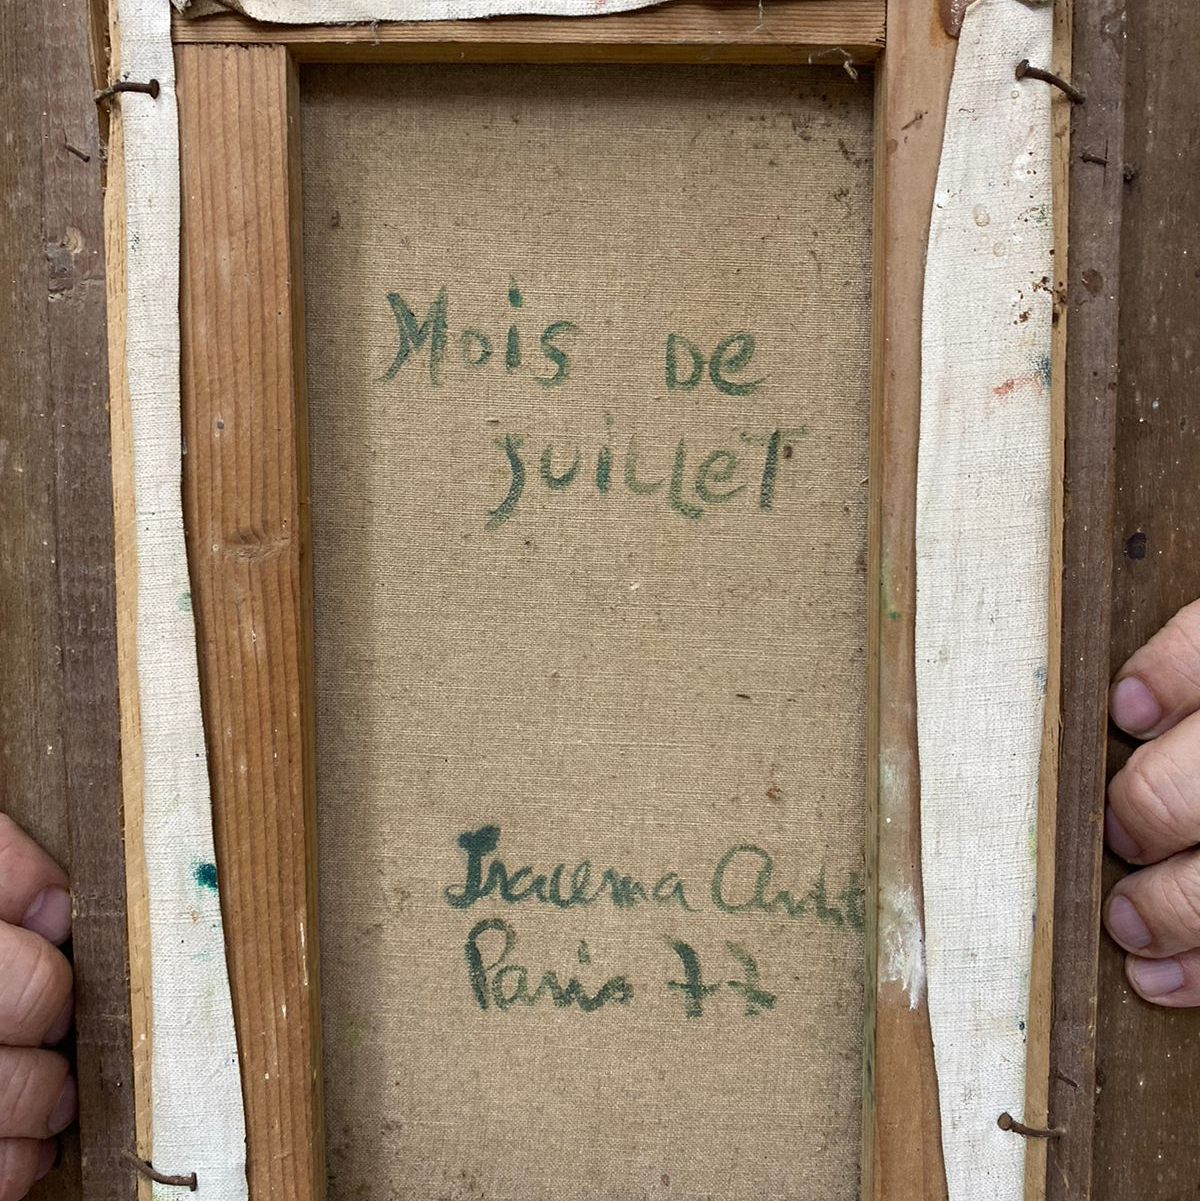 Mois de
juillet
Iracema Arditi
Paris 77